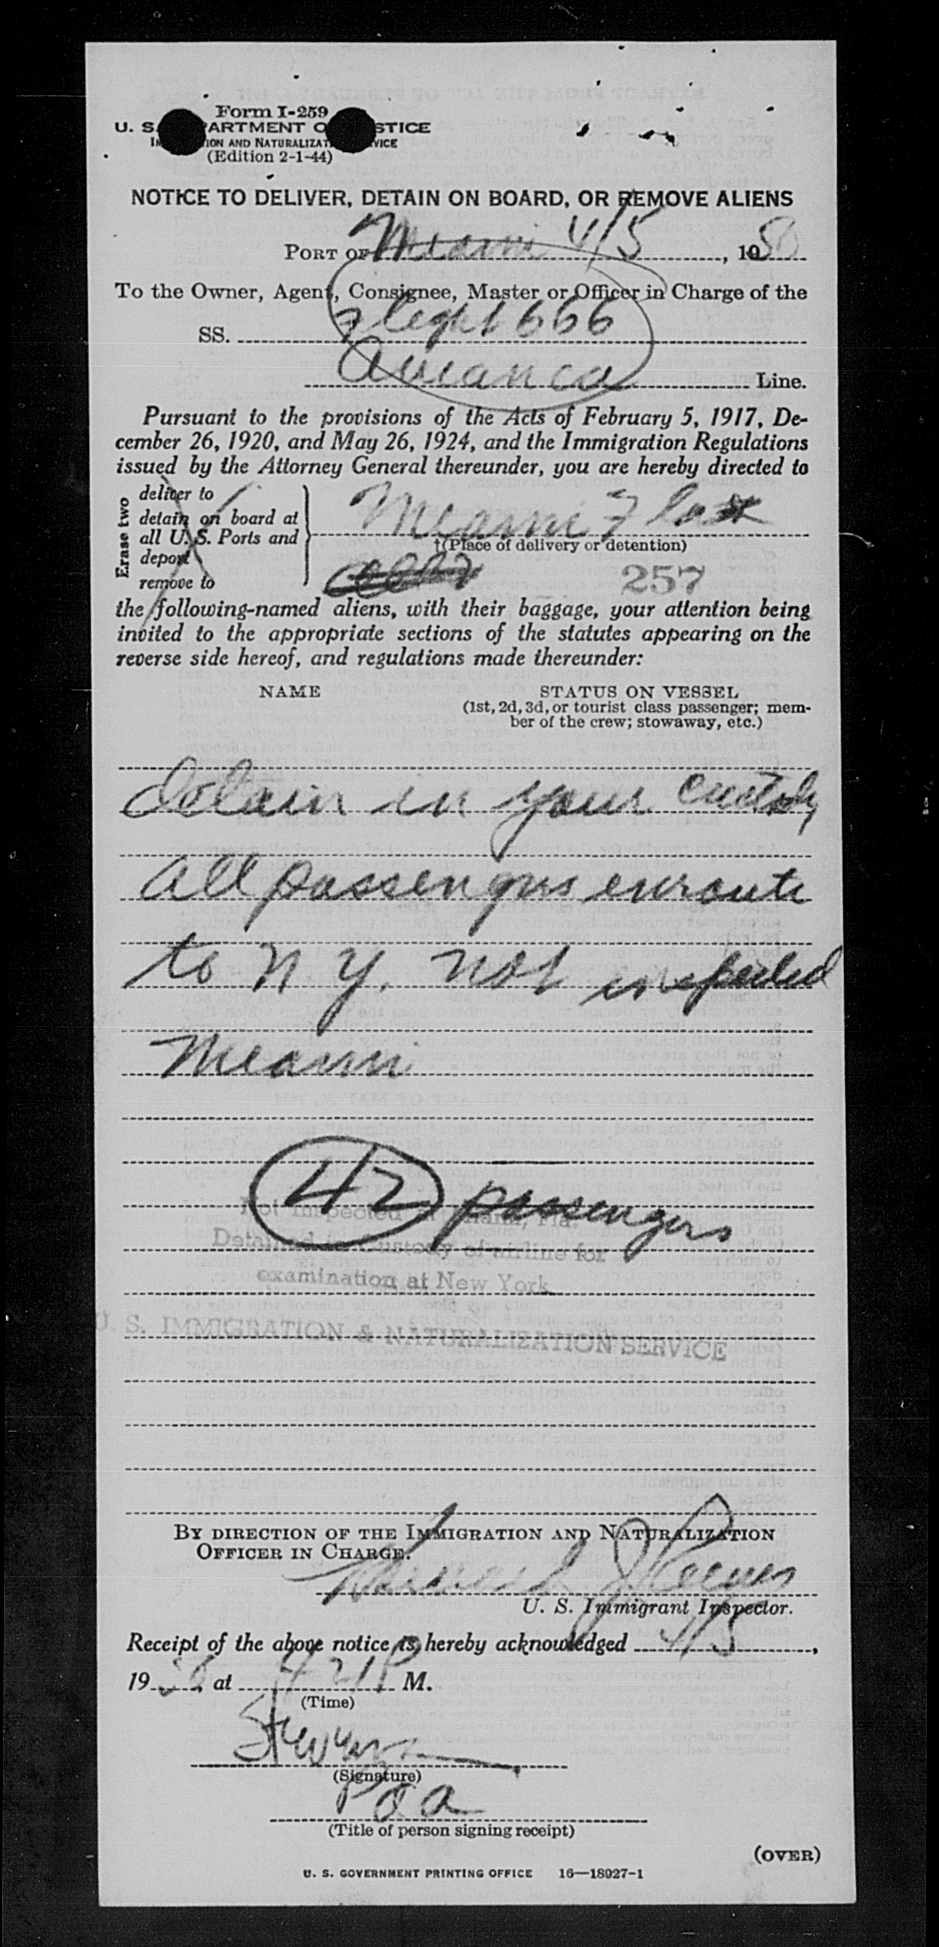 Form I-259
U. S. DEPARTMENT OF JUSTICE
IMMIGRATION AND NATURALIZATION SERVICE
(Edition 2-1-44)
NOTICE TO DELIVER, DETAIN ON BOARD, OR REMOVE ALIENS
PORT OF Miami 4/5, 1950
To the Owner, Agent, Consignee, Master or Officer in Charge of the
SS. Flight 666
Avianca Line.
Pursuant to the provisions of the Acts of February 5, 1917, De-
cember 26, 1920, and May 26, 1924, and the Immigration Regulations
issued by the Attorney General thereunder, you are hereby directed to
Erase two
deliver to
detain on board at
all U. S. Ports and
deport
remove to
Miami Fla
†(Place of delivery or detention)
257
the following-named aliens, with their baggage, your attention being
invited to the appropriate sections of the statutes appearing on the
reverse side hereof, and regulations made thereunder:
NAME
STATUS ON VESSEL
(1st, 2d, 3d, or tourist class passenger; mem-
ber of the crew; stowaway, etc.)
Detain in your custody
all passengers enroute
to N Y. not inspected
Miami
42 passengers
Not Inspected at Miami, Fla.
Detained in Custody of airline for
examination at New York
U. S. IMMIGRATION & NATURALIZATION SERVICE
BY DIRECTION OF THE IMMIGRATION AND NATURALIZATION
OFFICER IN CHARGE.
U. S. Immigrant Inspector.
Receipt of the above notice is hereby acknowledged 4/5,
1950 at 421 P M.
(Time)
(Signature)
Paa
(Title of person signing receipt)
(OVER)
U. S. GOVERNMENT PRINTING OFFICE 16—18927-1